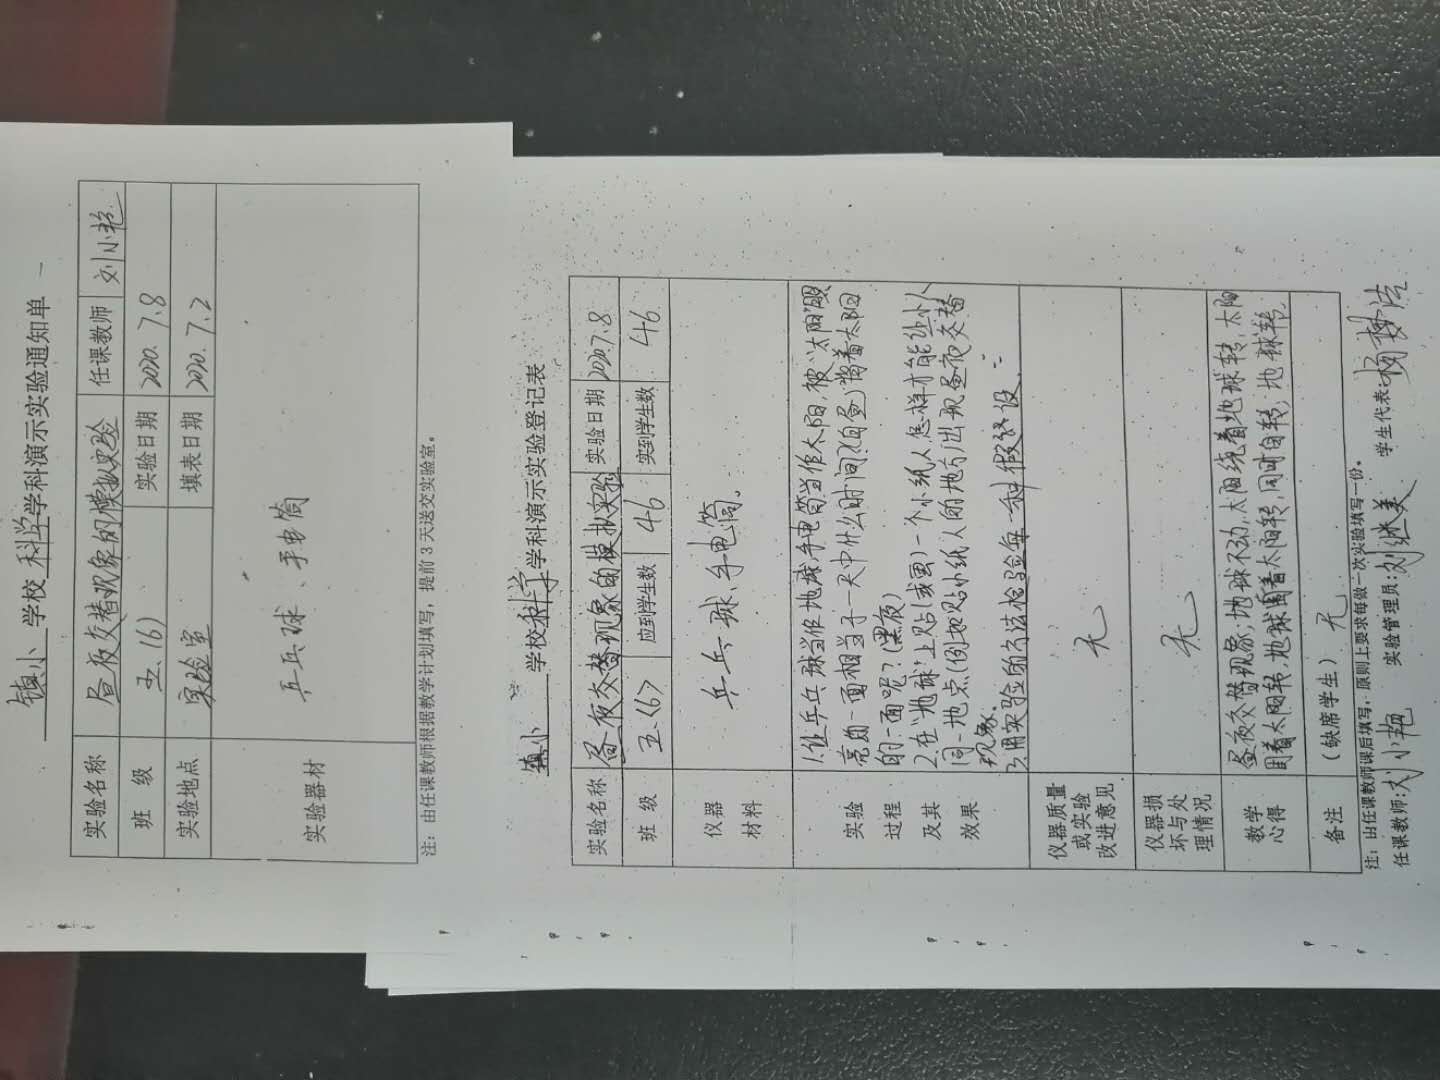 镇小 学校 科学 学科演示实验通知单
实验名称 昼夜交替现象的模拟实验 任课教师 刘小艳
班 级 五.(6) 实验日期 2020.7.8
实验地点 实验室 填表日期 2020.7.2
实验器材 乒乓球、手电筒
注：由任课教师根据教学计划填写，提前3天送交实验室。
镇小 学校 科学 学科演示实验登记表
实验名称 昼夜交替现象的模拟实验 实验日期 2020.7.8
班 级 五.<6> 应到学生数 46 实到学生数 46.
仪器
材料
乒乓球、手电筒。
实验
过程
及其
效果
1.让乒乓球当作地球,手电筒当作太阳,被"太阳"照
亮的一面相当于一天中什么时间?(白昼)背着太阳
的一面呢?(黑夜)
2.在"地球"上贴(或画)一个小纸人,怎样才能使小人
同一地点(例如贴小纸人的地方)出现昼夜交替
现象.
3.用实验的方法检验每一种假设.
仪器质量
或实验
改进意见
无
仪器损
坏与处
理情况
无
教学
心得
昼夜交替现象,地球不动,太阳绕着地球转,太阳
围着太阳转,地球围着太阳转,同时自转,地球转.
备注 (缺席学生) 无
注：由任课教师课后填写，原则上要求每做一次实验填写一份。
任课教师:刘小艳 实验管理员:刘继美 学生代表:杨梦洁